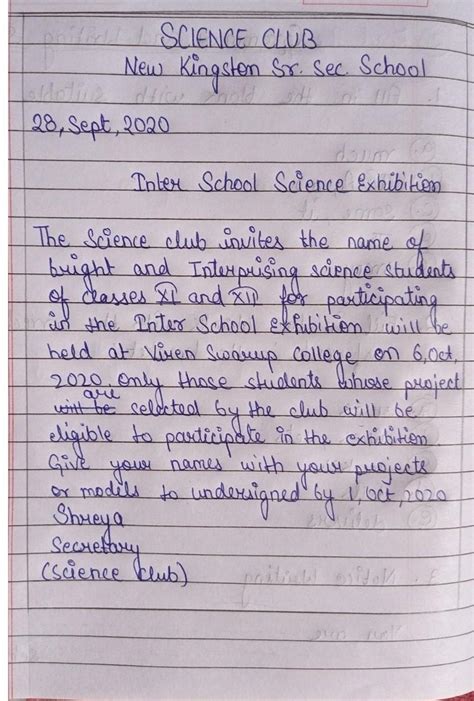 SCIENCE CLUB
New Kingston Sr. Sec. School
28, Sept, 2020
Inter School Science Exhibition
The Science club invites the name of
bright and Interprising science students
of classes XI and XII for participating
in the Inter School Exhibition will be
held at Viren Swarup College on 6, Oct,
2020. Only those students whose project
are
will be selected by the club will be
eligible to participate in the exhibition.
Give your names with your projects
or modils to undersigned by 1, Oct, 2020
Shreya
Secretary
(Science Club)